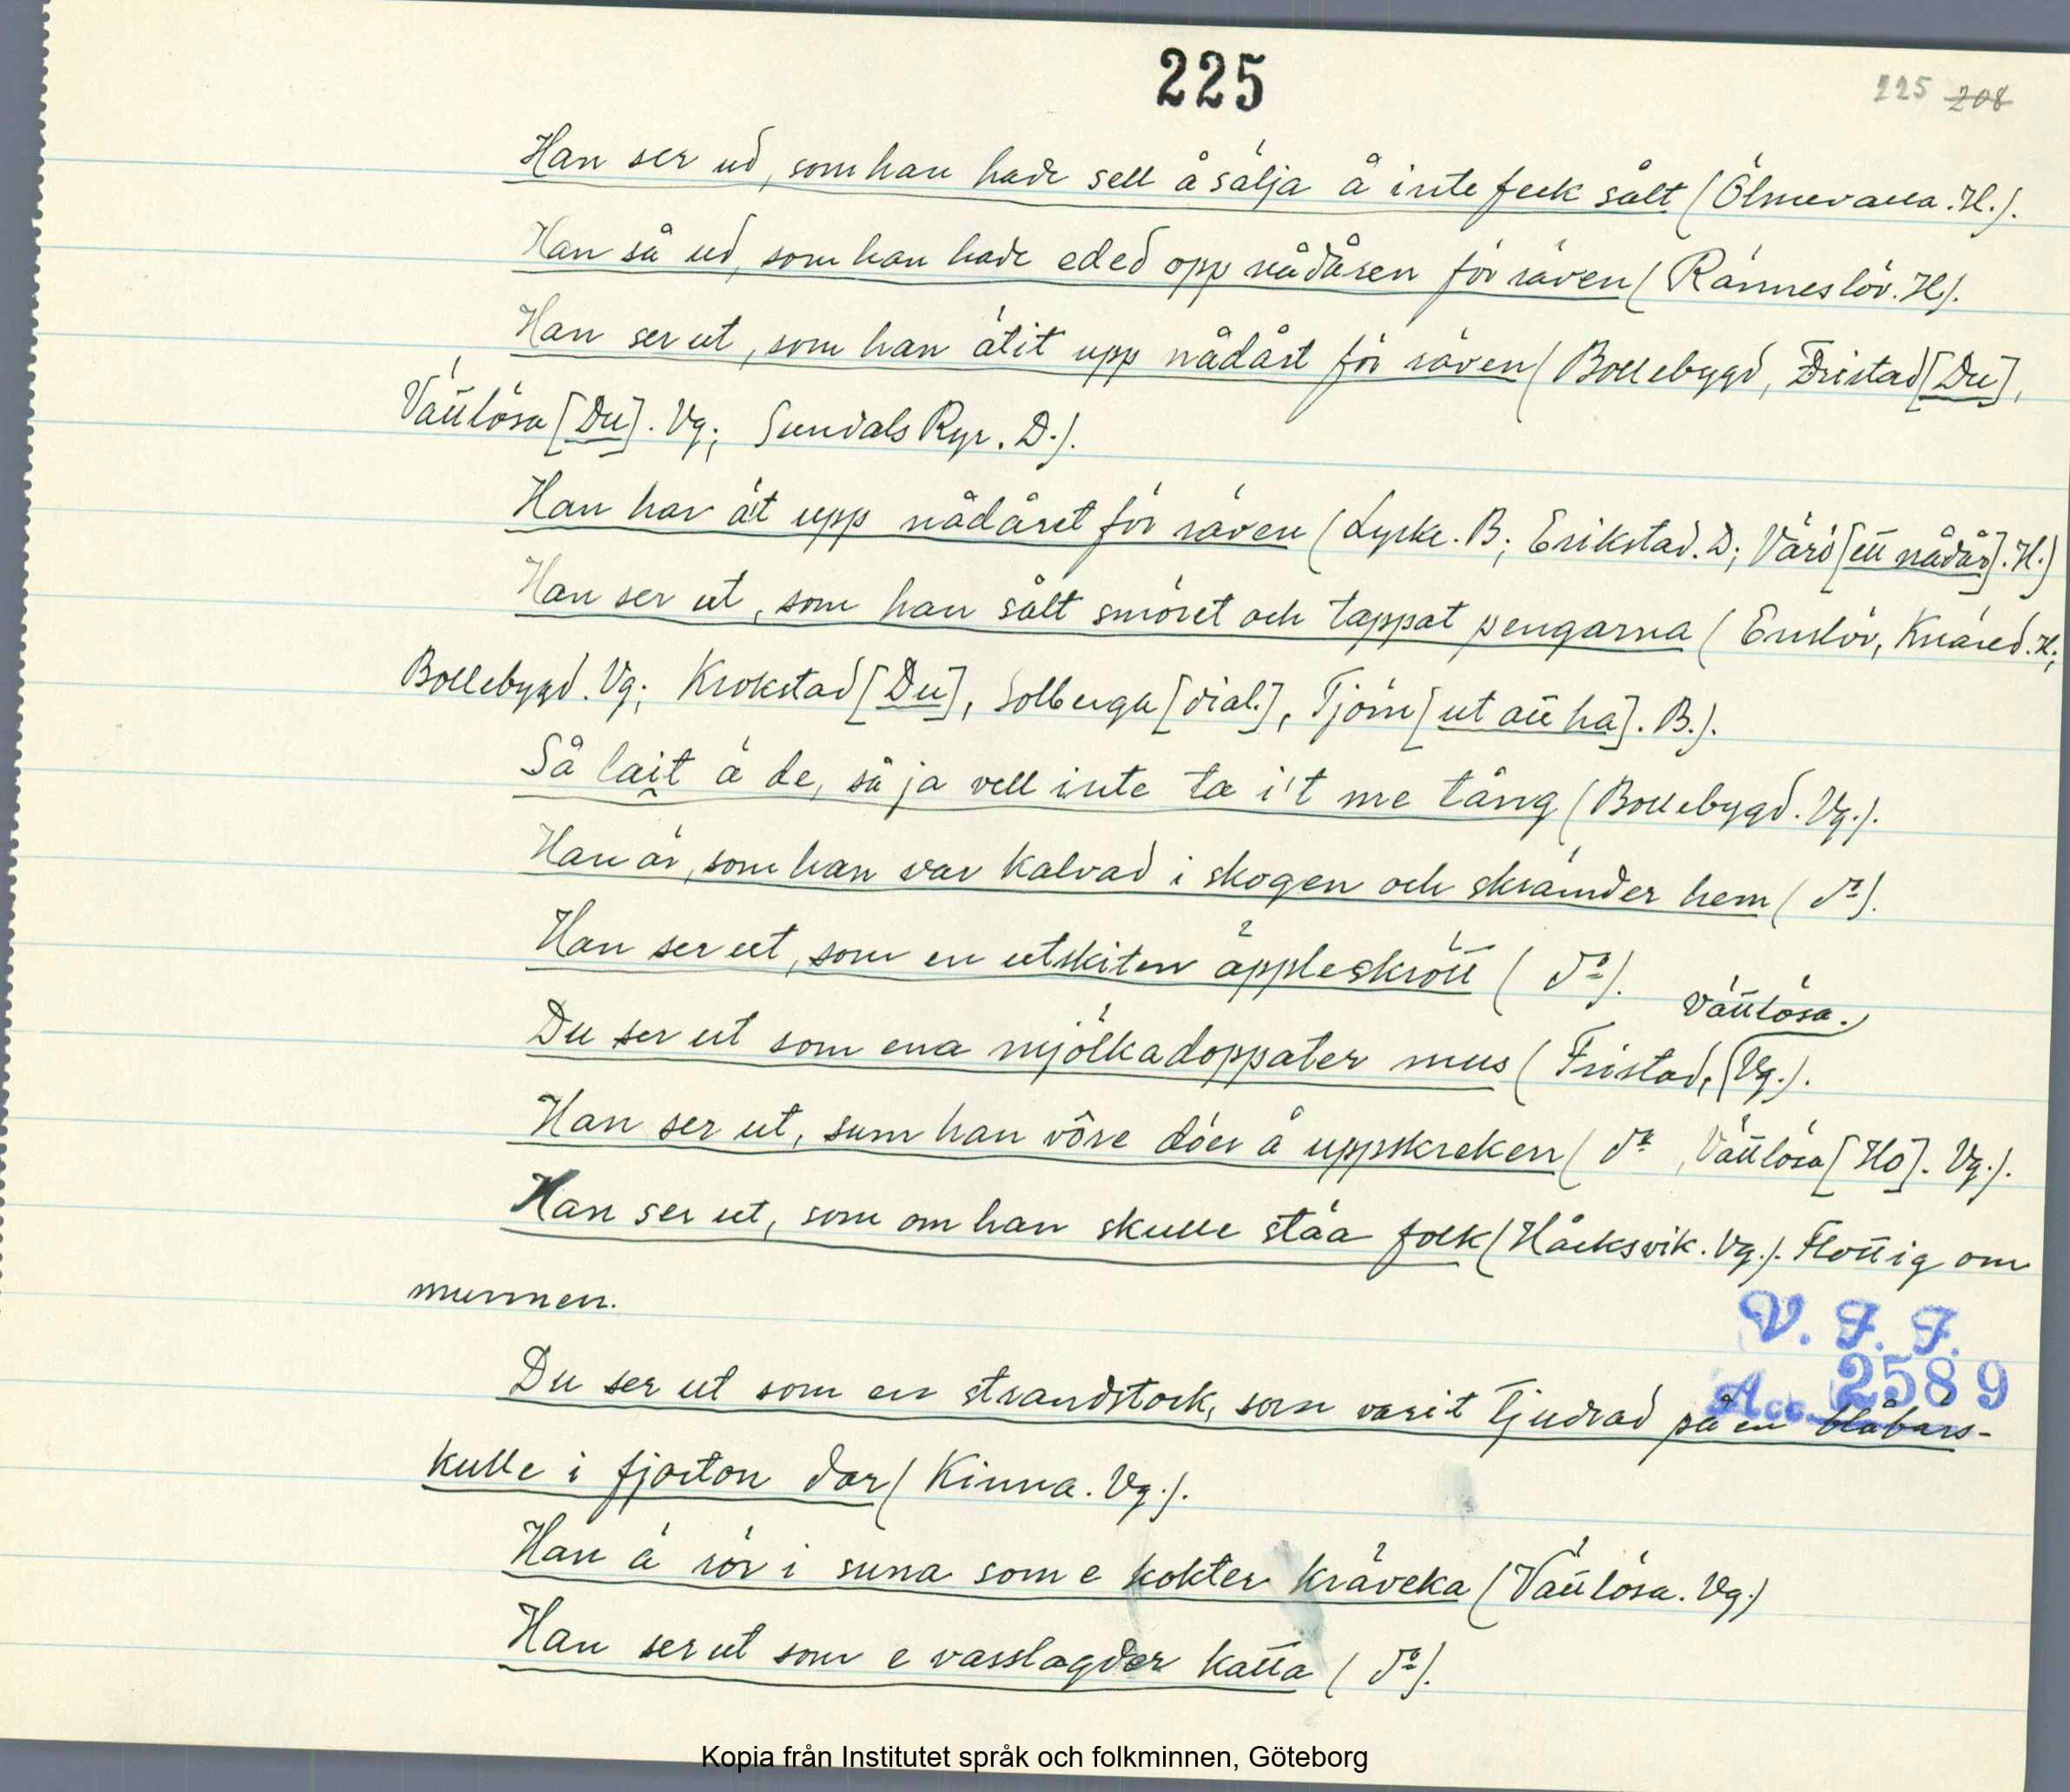 225
225 208
Han ser ud, som han hade sell å sälja å inte feck sålt (Ölmevalla. H.).
Han så ud, som han hade eded opp nådåren för räven (Ränneslöv. H).
Han ser ut, som han ätit upp nådårt för räven (Bollebygd, Fristad [Du],
Vättlösa [Du]. Vg; Sundals Ryr. D.).
Han har ät upp nådåret för räven (Lyrke. B; Erikstad. D; Värö [ett nådår]. H.)
Han ser ut, som han sålt smöret och tappat pengarna (Enslöv, Knäred. H;
Bollebygd. Vg; Krokstad [Du], Solberga [dial.], Tjörn [ut att ha]. B.).
Så lait ä de, så ja vell inte ta i't me tång (Bollebygd. Vg.).
Han är, som han var kalvad i skogen och skrämder hem (do).
Han ser ut, som en utskiten äppleskrött (do).
Vättlösa.
Du ser ut som ena mjölkadoppater mus (Fristad, Vg.).
Han ser ut, sum han vôre döer å uppskreken (do, Vättlösa [Ho]. Vg.).
Han ser ut, som om han skulle stäa folk (Håcksvik. Vg.). Flottig om
munnen.
V. F. F.
Acc. 2589
Du ser ut som en strandstork, som varit tjudrad på en blåbärs-
kulle i fjorton dar (Kinna. Vg.).
Han ä rör i suna som e kokter kräveka (Vättlösa. Vg.)
Han ser ut som e vasslagder katta (do).
Kopia från Institutet språk och folkminnen, Göteborg